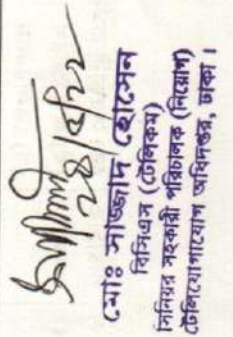 ২৪/৫/২২
মোঃ সাজ্জাদ হোসেন
বিসিএস (টেলিকম)
সিনিয়র সহকারী পরিচালক (নিয়োগ)
টেলিযোগাযোগ অধিদপ্তর, ঢাকা।